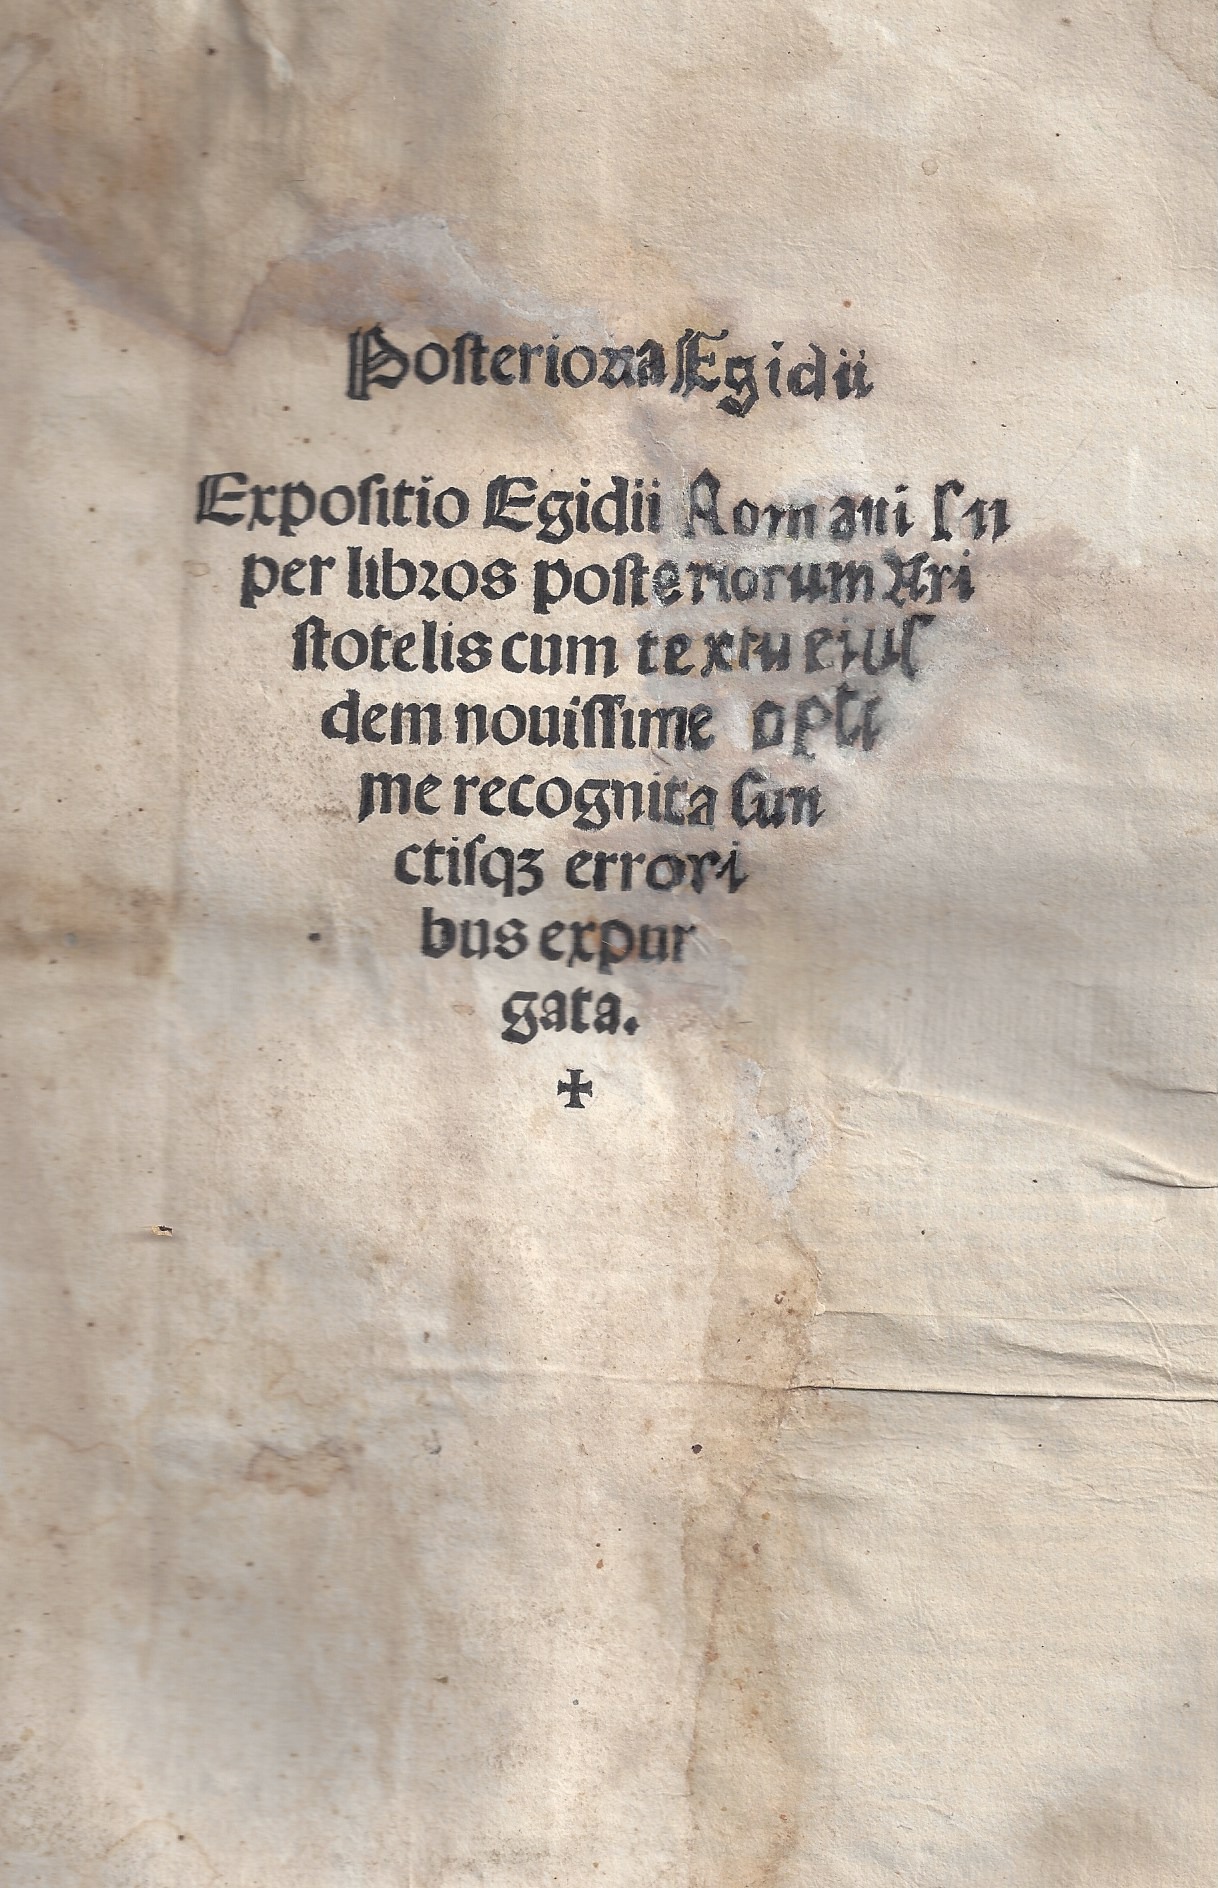 Posteriora Egidii
Expoſitio Egidii Romani Su
per libꝛos poſteriorum Ari
ſtotelis cum textu eiuſ
dem nouiſſime opti
me recognita Cun
ctiſqꝫ errori
bus expur
gata.
✠